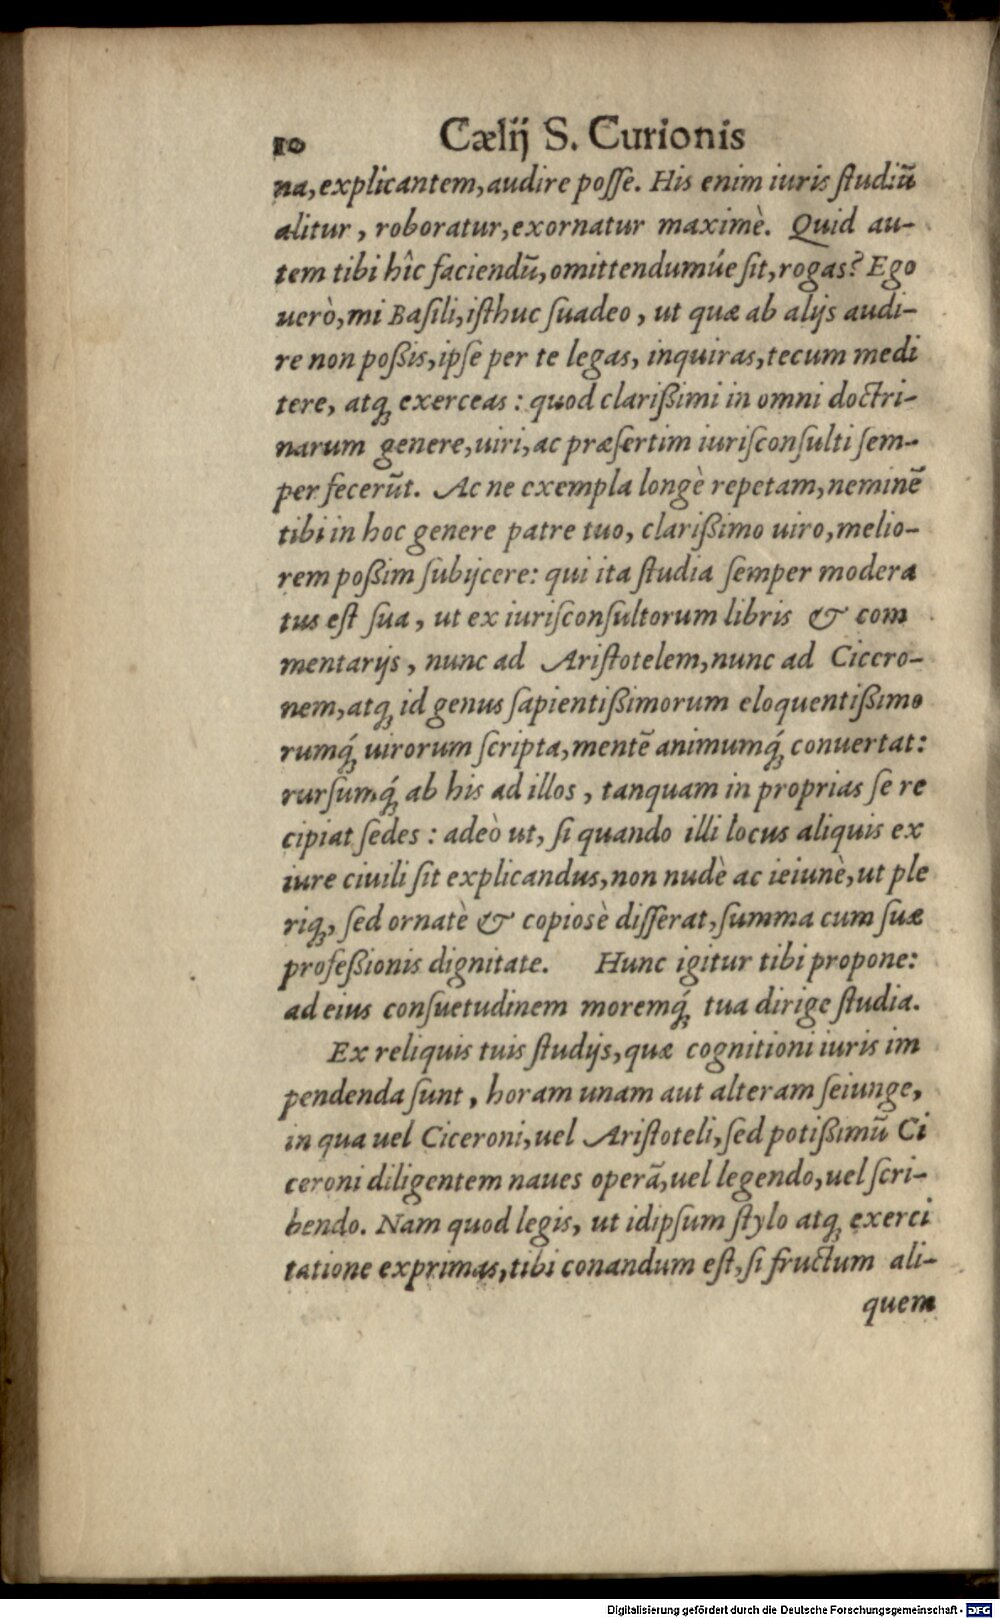 10 Cælij S. Curionis
na, explicantem, audire posſe. His enim iuris ſtudiũ
alitur, roboratur, exornatur maximè. Quid au-
tem tibi hîc faciendũ, omittendumúe ſit, rogas? Ego
uerò, mi Baſili, iſthuc ſuadeo, ut quæ ab alijs audi-
re non poßis, ipſe per te legas, inquiras, tecum medi
tere, atq́ꝫ exerceas: quod clarißimi in omni doctri-
narum genere, uiri, ac præſertim iuriſconſulti ſem-
per fecerũt. Ac ne exempla longè repetam, neminẽ
tibi in hoc genere patre tuo, clarißimo uiro, melio-
rem poßim ſubijcere: qui ita ſtudia ſemper modera
tus eſt ſua, ut ex iuriſconſultorum libris & com
mentarijs, nunc ad Ariſtotelem, nunc ad Cicero-
nem, atqꝫ id genus ſapientißimorum eloquentißimo
rumq́ꝫ uirorum ſcripta, mentẽ animumq́ꝫ conuertat:
rurſumq́ꝫ ab his ad illos, tanquam in proprias ſe re
cipiat ſedes: adeò ut, ſi quando illi locus aliquis ex
iure ciuili ſit explicandus, non nudè ac ieiunè, ut ple
riqꝫ, ſed ornatè & copiosè diſſerat, ſumma cum ſuæ
profeßionis dignitate. Hunc igitur tibi propone:
ad eius conſuetudinem moremq́ꝫ tua dirige ſtudia.
Ex reliquis tuis ſtudijs, quæ cognitioni iuris im
pendenda ſunt, horam unam aut alteram ſeiunge,
in qua uel Ciceroni, uel Ariſtoteli, ſed potißimũ Ci
ceroni diligentem naues operã, uel legendo, uel ſcri-
bendo. Nam quod legis, ut idipſum ſtylo atqꝫ exerci
tatione exprimas, tibi conandum eſt, ſi fructum ali-
quem
Digitalisierung gefördert durch die Deutsche Forschungsgemeinschaft - DFG